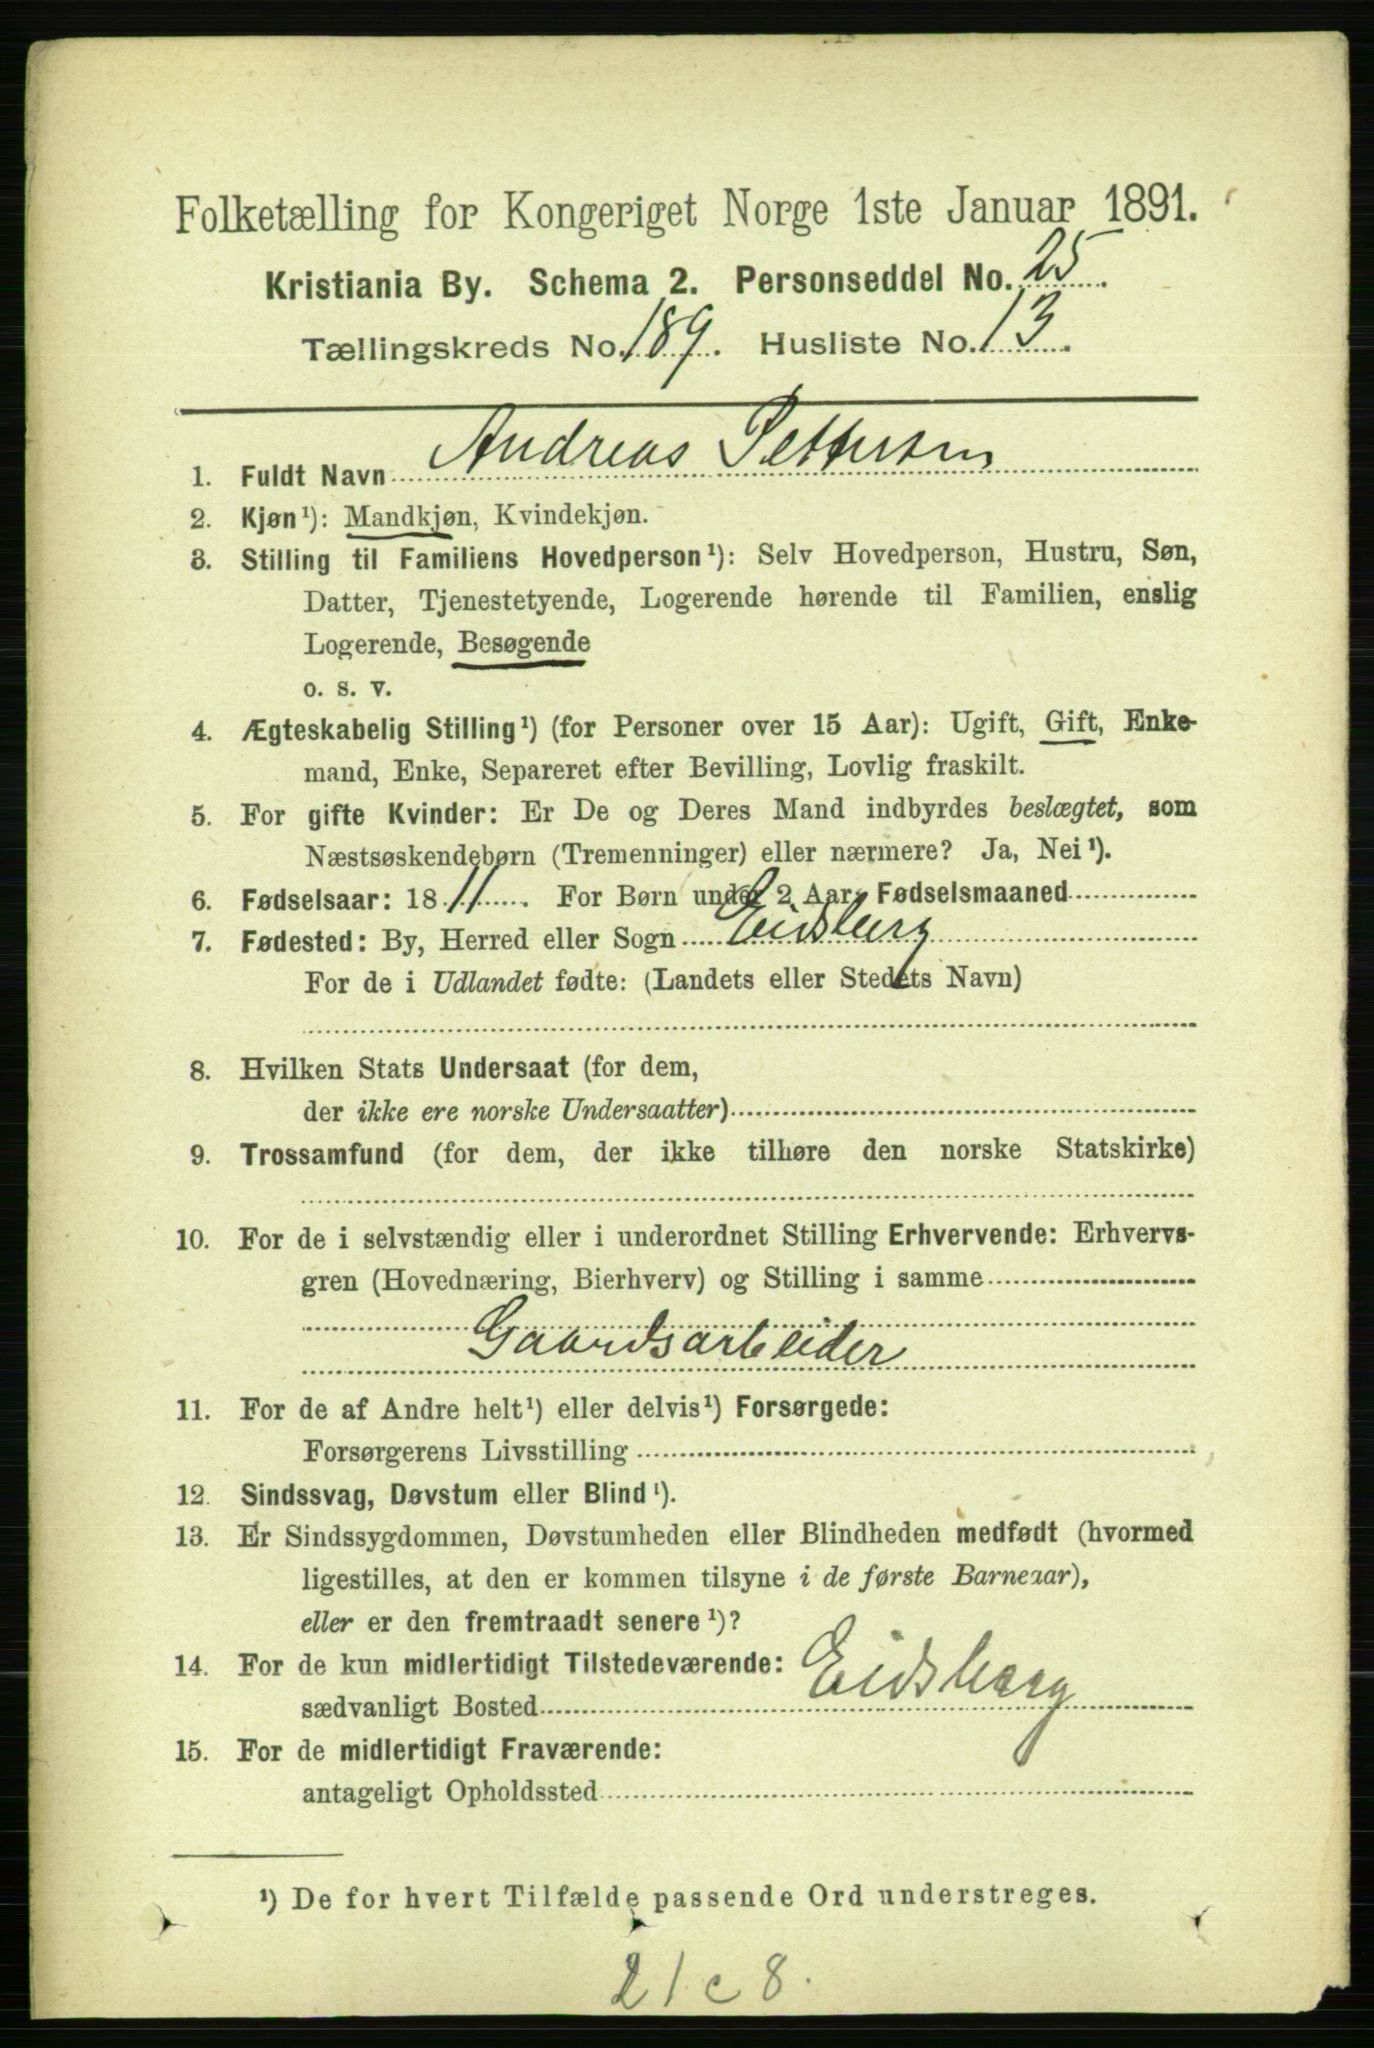 Folketælling for Kongeriget Norge 1ste Januar 1891.
Kristiania By. Schema 2. Personseddel No. 25.
Tællingskreds No. 189. Husliste No. 13.
1. Fuldt Navn Andreas Pettersen
2. Kjøn¹): Mandkjøn, Kvindekjøn.
3. Stilling til Familiens Hovedperson¹): Selv Hovedperson, Hustru, Søn,
Datter, Tjenestetyende, Logerende hørende til Familien, enslig
Logerende, Besøgende
o. s. v.
4. Ægteskabelig Stilling¹) (for Personer over 15 Aar): Ugift, Gift, Enke-
mand, Enke, Separeret efter Bevilling, Lovlig fraskilt.
5. For gifte Kvinder: Er De og Deres Mand indbyrdes beslægtet, som
Næstsøskendebørn (Tremenninger) eller nærmere? Ja, Nei¹).
6. Fødselsaar: 1811. For Børn under 2 Aar: Fødselsmaaned
7. Fødested: By, Herred eller Sogn Eidsberg
For de i Udlandet fødte: (Landets eller Stedets Navn)
8. Hvilken Stats Undersaat (for dem,
der ikke ere norske Undersaatter)
9. Trossamfund (for dem, der ikke tilhøre den norske Statskirke)
10. For de i selvstændig eller i underordnet Stilling Erhvervende: Erhvervs-
gren (Hovednæring, Bierhverv) og Stilling i samme
Gaardsarbeider
11. For de af Andre helt¹) eller delvis¹) Forsørgede:
Forsørgerens Livsstilling
12. Sindssvag, Døvstum eller Blind¹).
13. Er Sindssygdommen, Døvstumheden eller Blindheden medfødt (hvormed
ligestilles, at den er kommen tilsyne i de første Barneaar),
eller er den fremtraadt senere¹)?
14. For de kun midlertidigt Tilstedeværende:
sædvanligt Bosted Eidsberg
15. For de midlertidigt Fraværende:
antageligt Opholdssted
¹) De for hvert Tilfælde passende Ord understreges.
21c8.